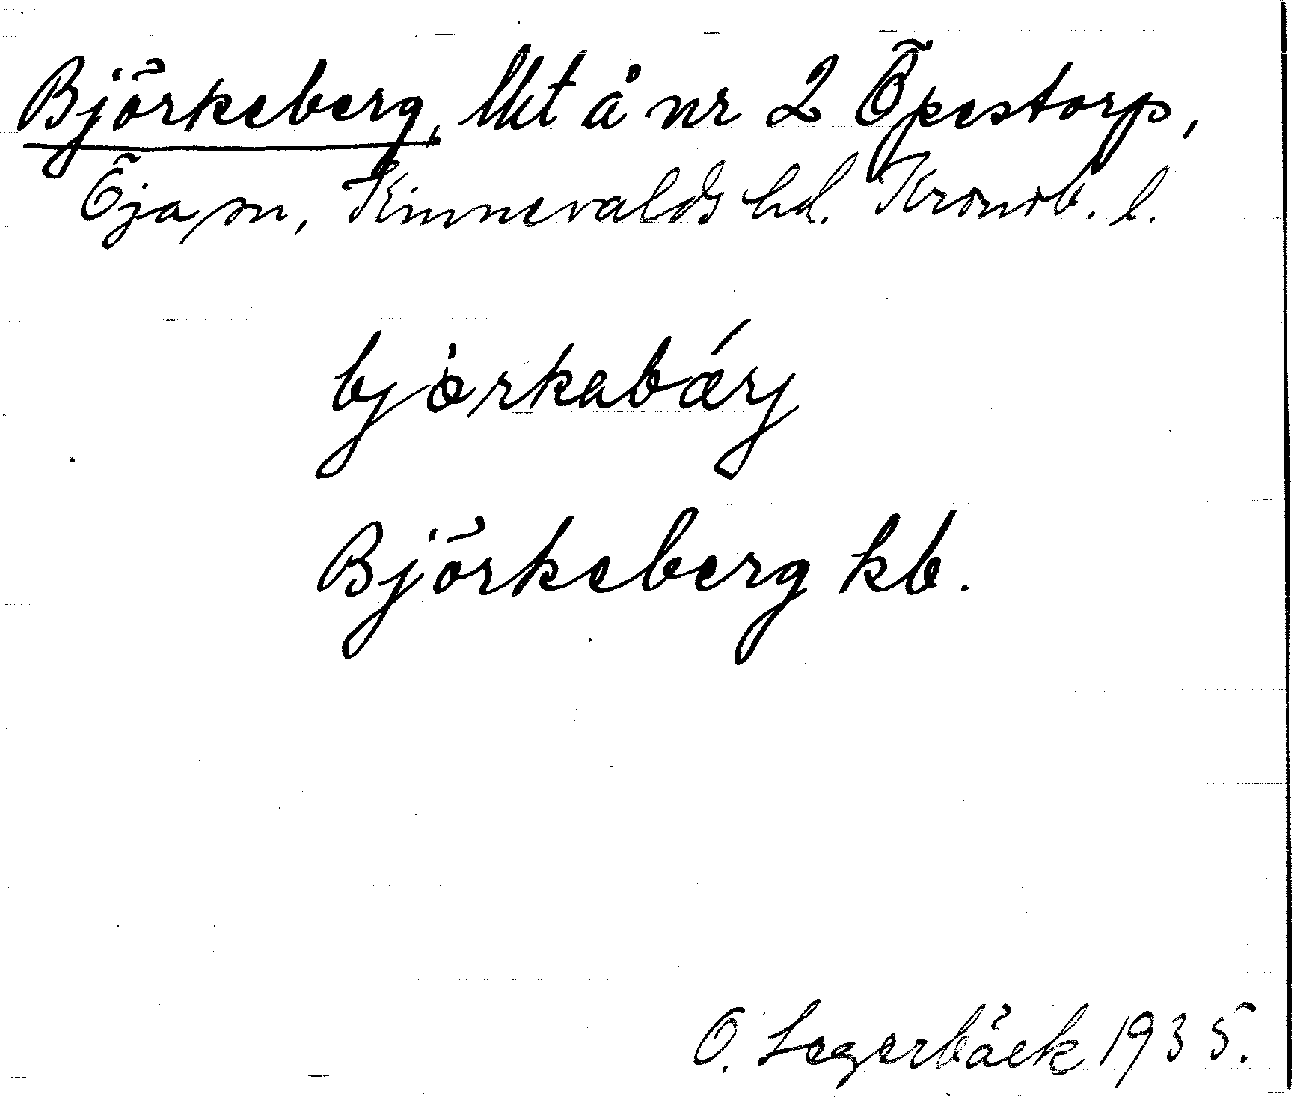 Björkeberg, lht å nr 2 Öpestorp,
Öja sn, Kinnevalds hd. Kronob. l.
björkabærj
Björkeberg kb.
O. Segerbäck 1935.